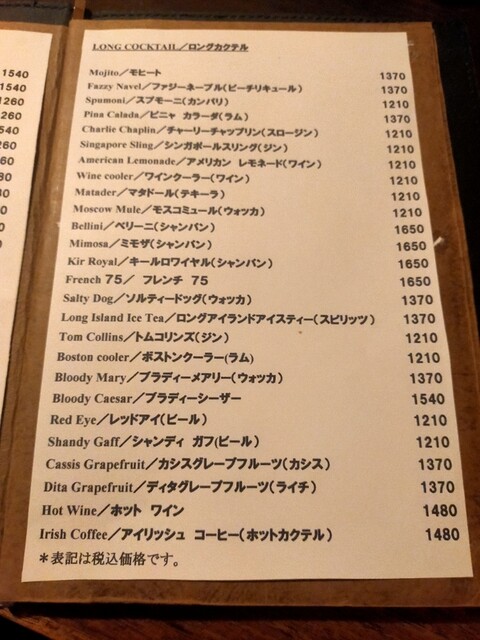 LONG COCKTAIL／ロングカクテル
Mojito／モヒート 1370
Fazzy Navel／ファジーネーブル(ピーチリキュール) 1370
Spumoni／スプモーニ(カンパリ) 1210
Pina Calada／ピニャ カラーダ(ラム) 1370
Charlie Chaplin／チャーリーチャップリン(スロージン) 1210
Singapore Sling／シンガポールスリング(ジン) 1210
American Lemonade／アメリカン レモネード(ワイン) 1210
Wine cooler／ワインクーラー(ワイン) 1210
Matader／マタドール(テキーラ) 1210
Moscow Mule／モスコミュール(ウォッカ) 1210
Bellini／ベリーニ(シャンパン) 1650
Mimosa／ミモザ(シャンパン) 1650
Kir Royal／キールロワイヤル(シャンパン) 1650
French 75／ フレンチ 75 1650
Salty Dog／ソルティードッグ(ウォッカ) 1370
Long Island Ice Tea／ロングアイランドアイスティー(スピリッツ) 1370
Tom Collins／トムコリンズ(ジン) 1210
Boston cooler／ボストンクーラー(ラム) 1210
Bloody Mary／ブラディーメアリー(ウォッカ) 1370
Bloody Caesar／ブラディーシーザー 1540
Red Eye／レッドアイ(ビール) 1210
Shandy Gaff／シャンディ ガフ(ビール) 1210
Cassis Grapefruit／カシスグレープフルーツ(カシス) 1370
Dita Grapefruit／ディタグレープフルーツ(ライチ) 1370
Hot Wine／ホット ワイン 1480
Irish Coffee／アイリッシュ コーヒー(ホットカクテル) 1480
＊表記は税込価格です。